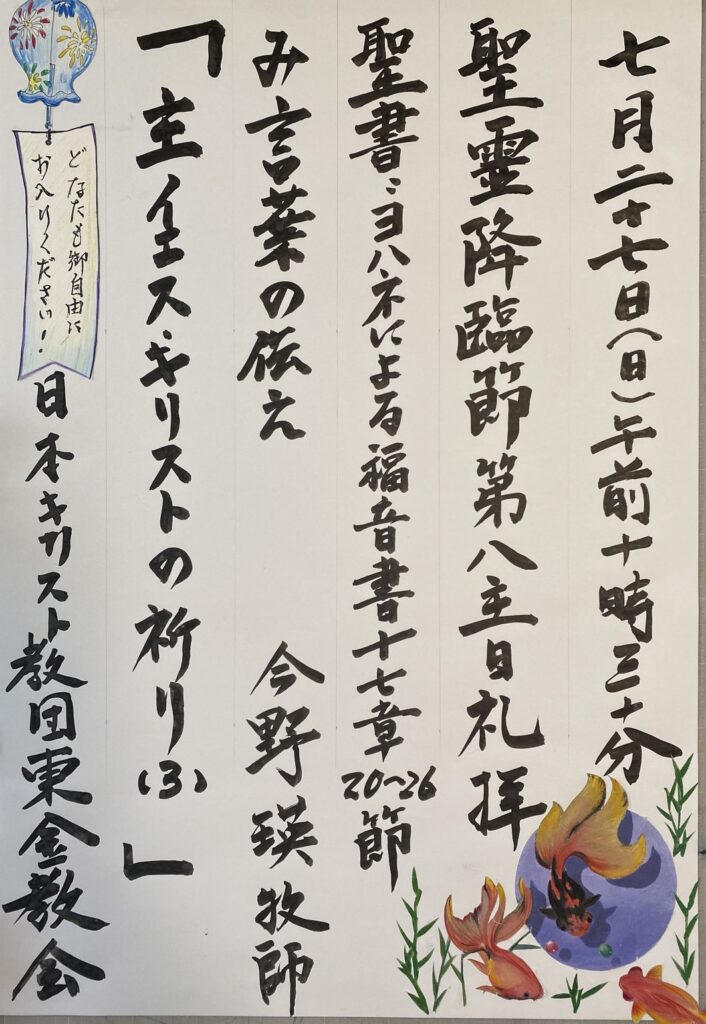 七月二十七日(日)午前十時三十分
聖靈降臨節第八主日礼拝
聖書:ヨハネによる福音書十七章20~26節
み言葉の伝え 今野瑛牧師
「主イエス・キリストの祈り(3)」
どなたも御自由に
お入りください!
日本キリスト教団東金教会